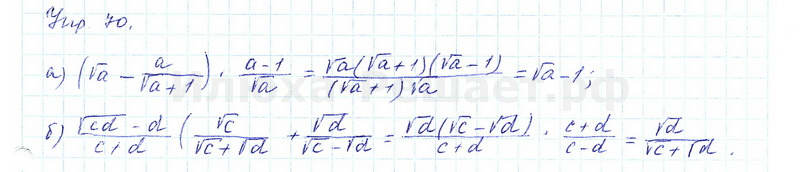 Упр 70.
а) (√a - a/(√a+1)) · (a-1)/√a = √a(√a+1)(√a-1)/((√a+1)√a) = √a-1;
б) (√cd - d)/(c+d) (√c/(√c+√d) + √d/(√c-√d) = √d(√c-√d)/(c+d) · (c+d)/(c-d) = √d/(√c+√d).